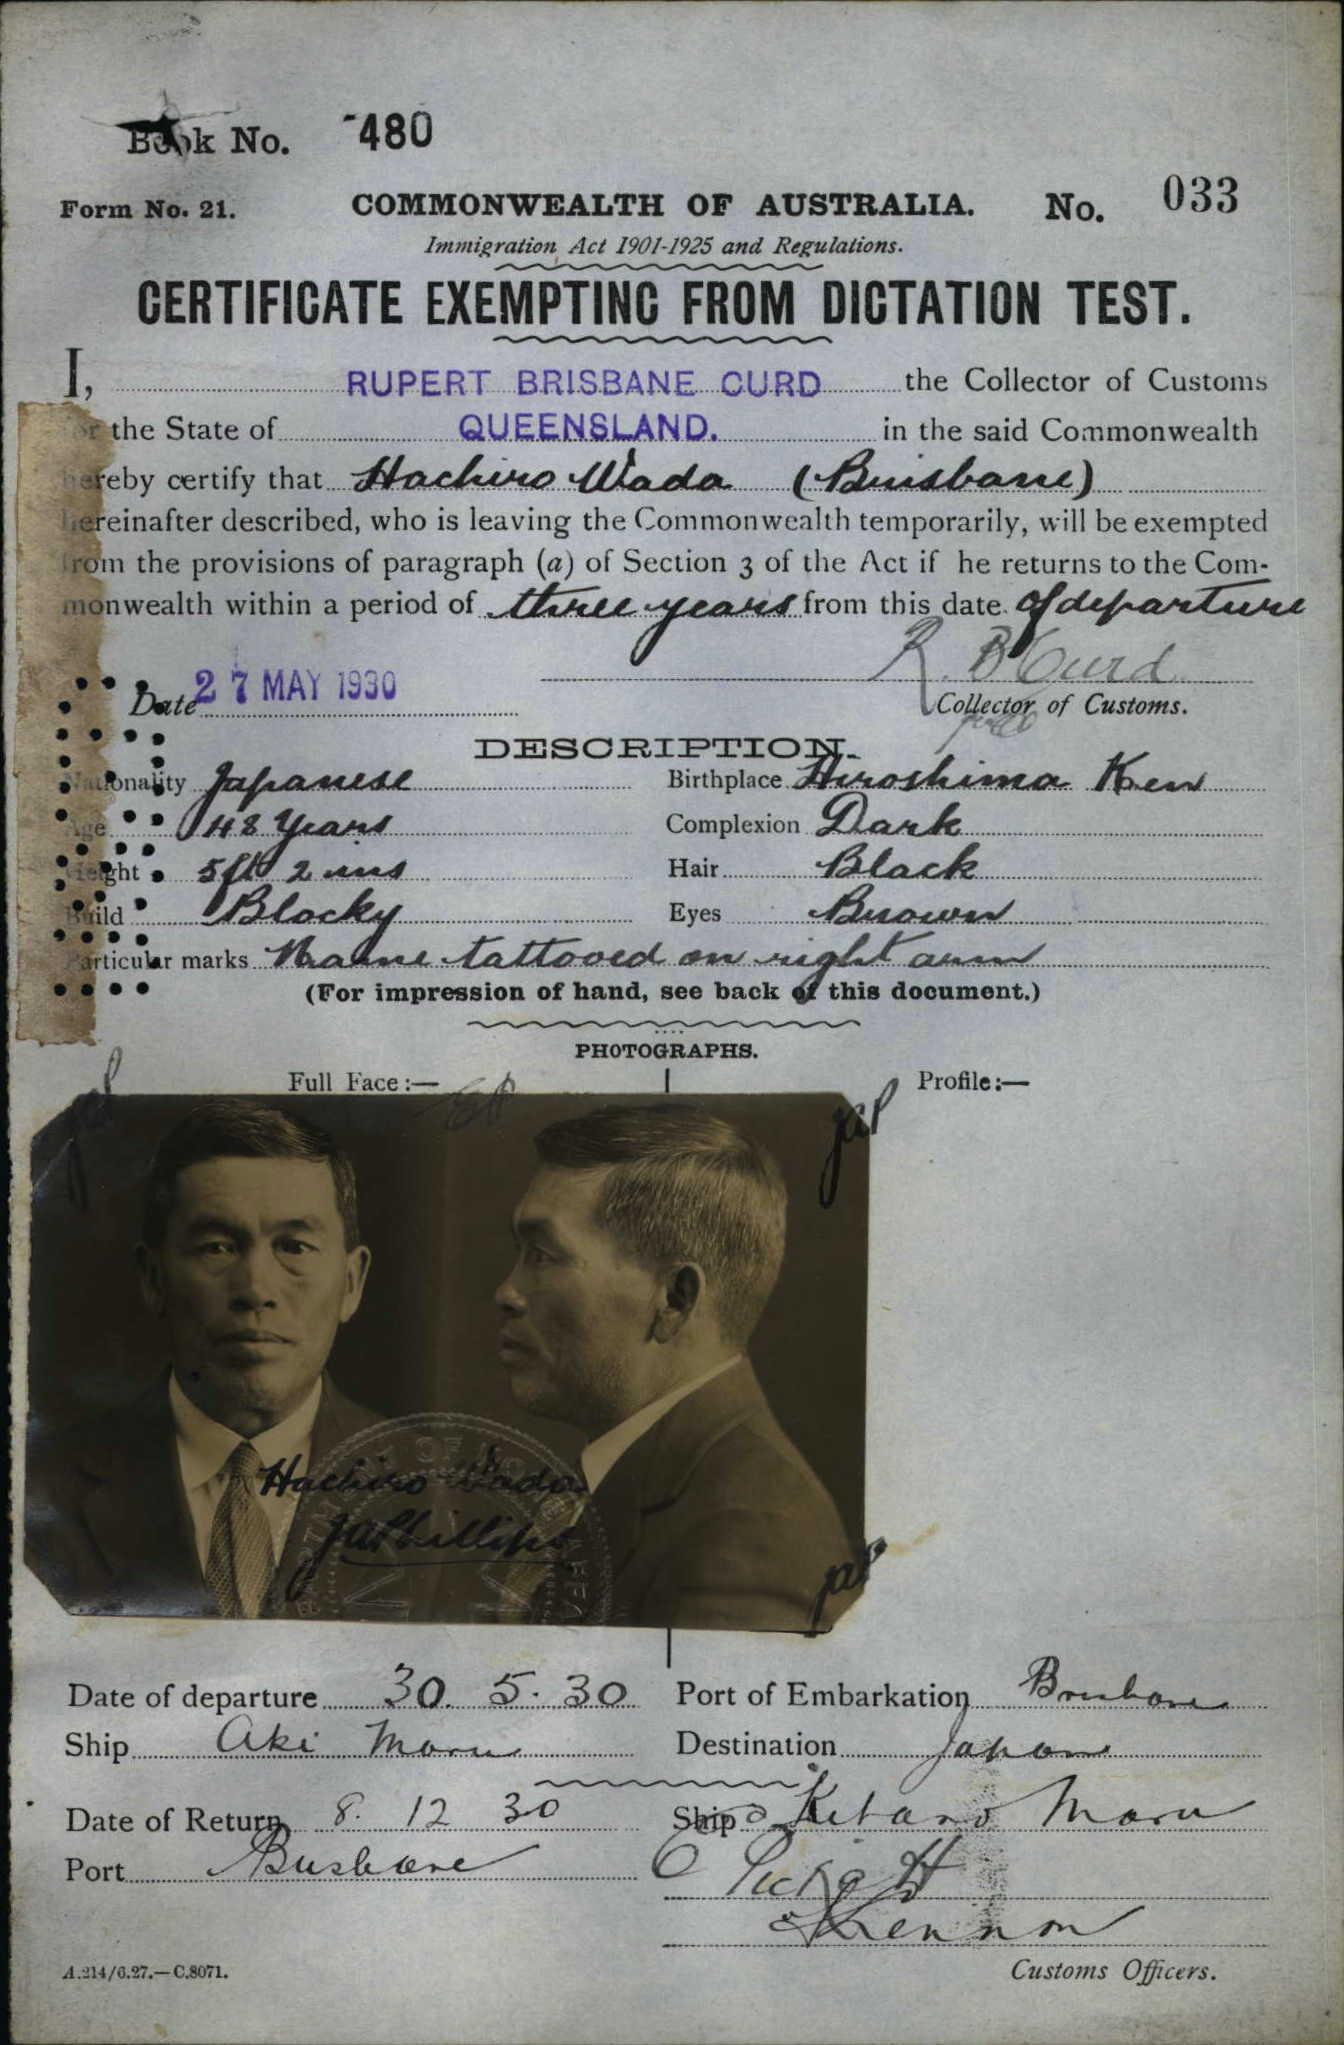 Book No. 480
Form No. 21. COMMONWEALTH OF AUSTRALIA. No. 033
Immigration Act 1901-1925 and Regulations.
CERTIFICATE EXEMPTING FROM DICTATION TEST.
I, RUPERT BRISBANE CURD the Collector of Customs
for the State of QUEENSLAND. in the said Commonwealth
hereby certify that Hachiro Wada (Brisbane)
hereinafter described, who is leaving the Commonwealth temporarily, will be exempted
from the provisions of paragraph (a) of Section 3 of the Act if he returns to the Com-
monwealth within a period of three years from this date of departure
R. B Curd
Date 27 MAY 1930 Collector of Customs.
DESCRIPTION.
Nationality Japanese Birthplace Hiroshima Ken
Age 48 Years Complexion Dark
Height 5ft 2 ins Hair Black
Build Blocky Eyes Brown
Particular marks Name tattooed on right arm
(For impression of hand, see back of this document.)
PHOTOGRAPHS.
Full Face:— Profile:—
JAP
JAP
Hachiro Wada
JAPhillips
JAP
Date of departure 30. 5. 30 Port of Embarkation Brisbane
Ship Aki Maru Destination Japan
Date of Return 8. 12 30 Ship Kitano Maru
Port Brisbane
Customs Officers.
A.214/6.27.—C.8071.